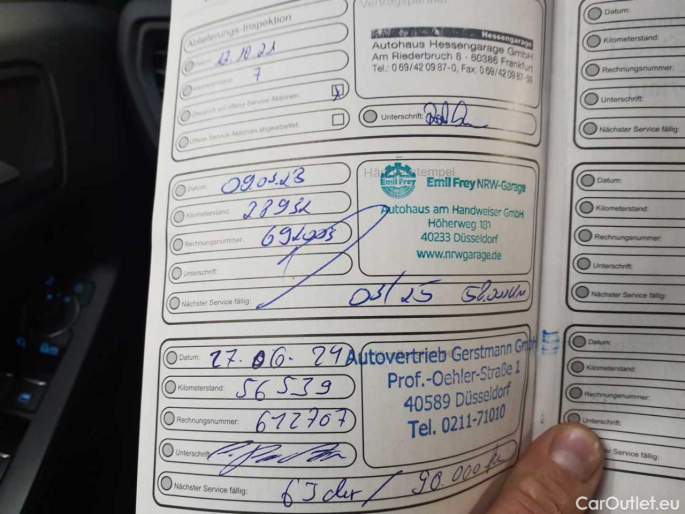 Ablieferungs-Inspektion
12.10.21
7
Offene Service-Aktionen abgearbeitet:
Hessengarage
Autohaus Hessengarage GmbH
Am Riederbruch 6 - 60386 Frankfurt
Tel.: 0 69/42 09 87-0, Fax: 0 69/42 09 87-
Unterschrift:
Datum: 09.03.23
Kilometerstand: 28932
Rechnungsnummer:
Unterschrift:
Nächster Service fällig: 03/25
Emil Frey
Emil Frey NRW-Garage
Autohaus am Handweiser GmbH
Höherweg 181
40233 Düsseldorf
www.nrwgarage.de
Datum: 27.06.24
Kilometerstand: 56539
Rechnungsnummer: 612707
Unterschrift:
Nächster Service fällig: 90 000
Autovertrieb Gerstmann GmbH
Prof.-Oehler-Straße 1
40589 Düsseldorf
Tel. 0211-71010
Datum:
Kilometerstand:
Rechnungsnummer:
Unterschrift:
Nächster Service fällig:
Datum:
Kilometerstand:
Rechnungsnummer:
Unterschrift:
Nächster Service fällig:
Datum:
Kilometerstand:
Rechnungsnummer:
Unterschrift:
Service fällig:
CarOutlet.eu